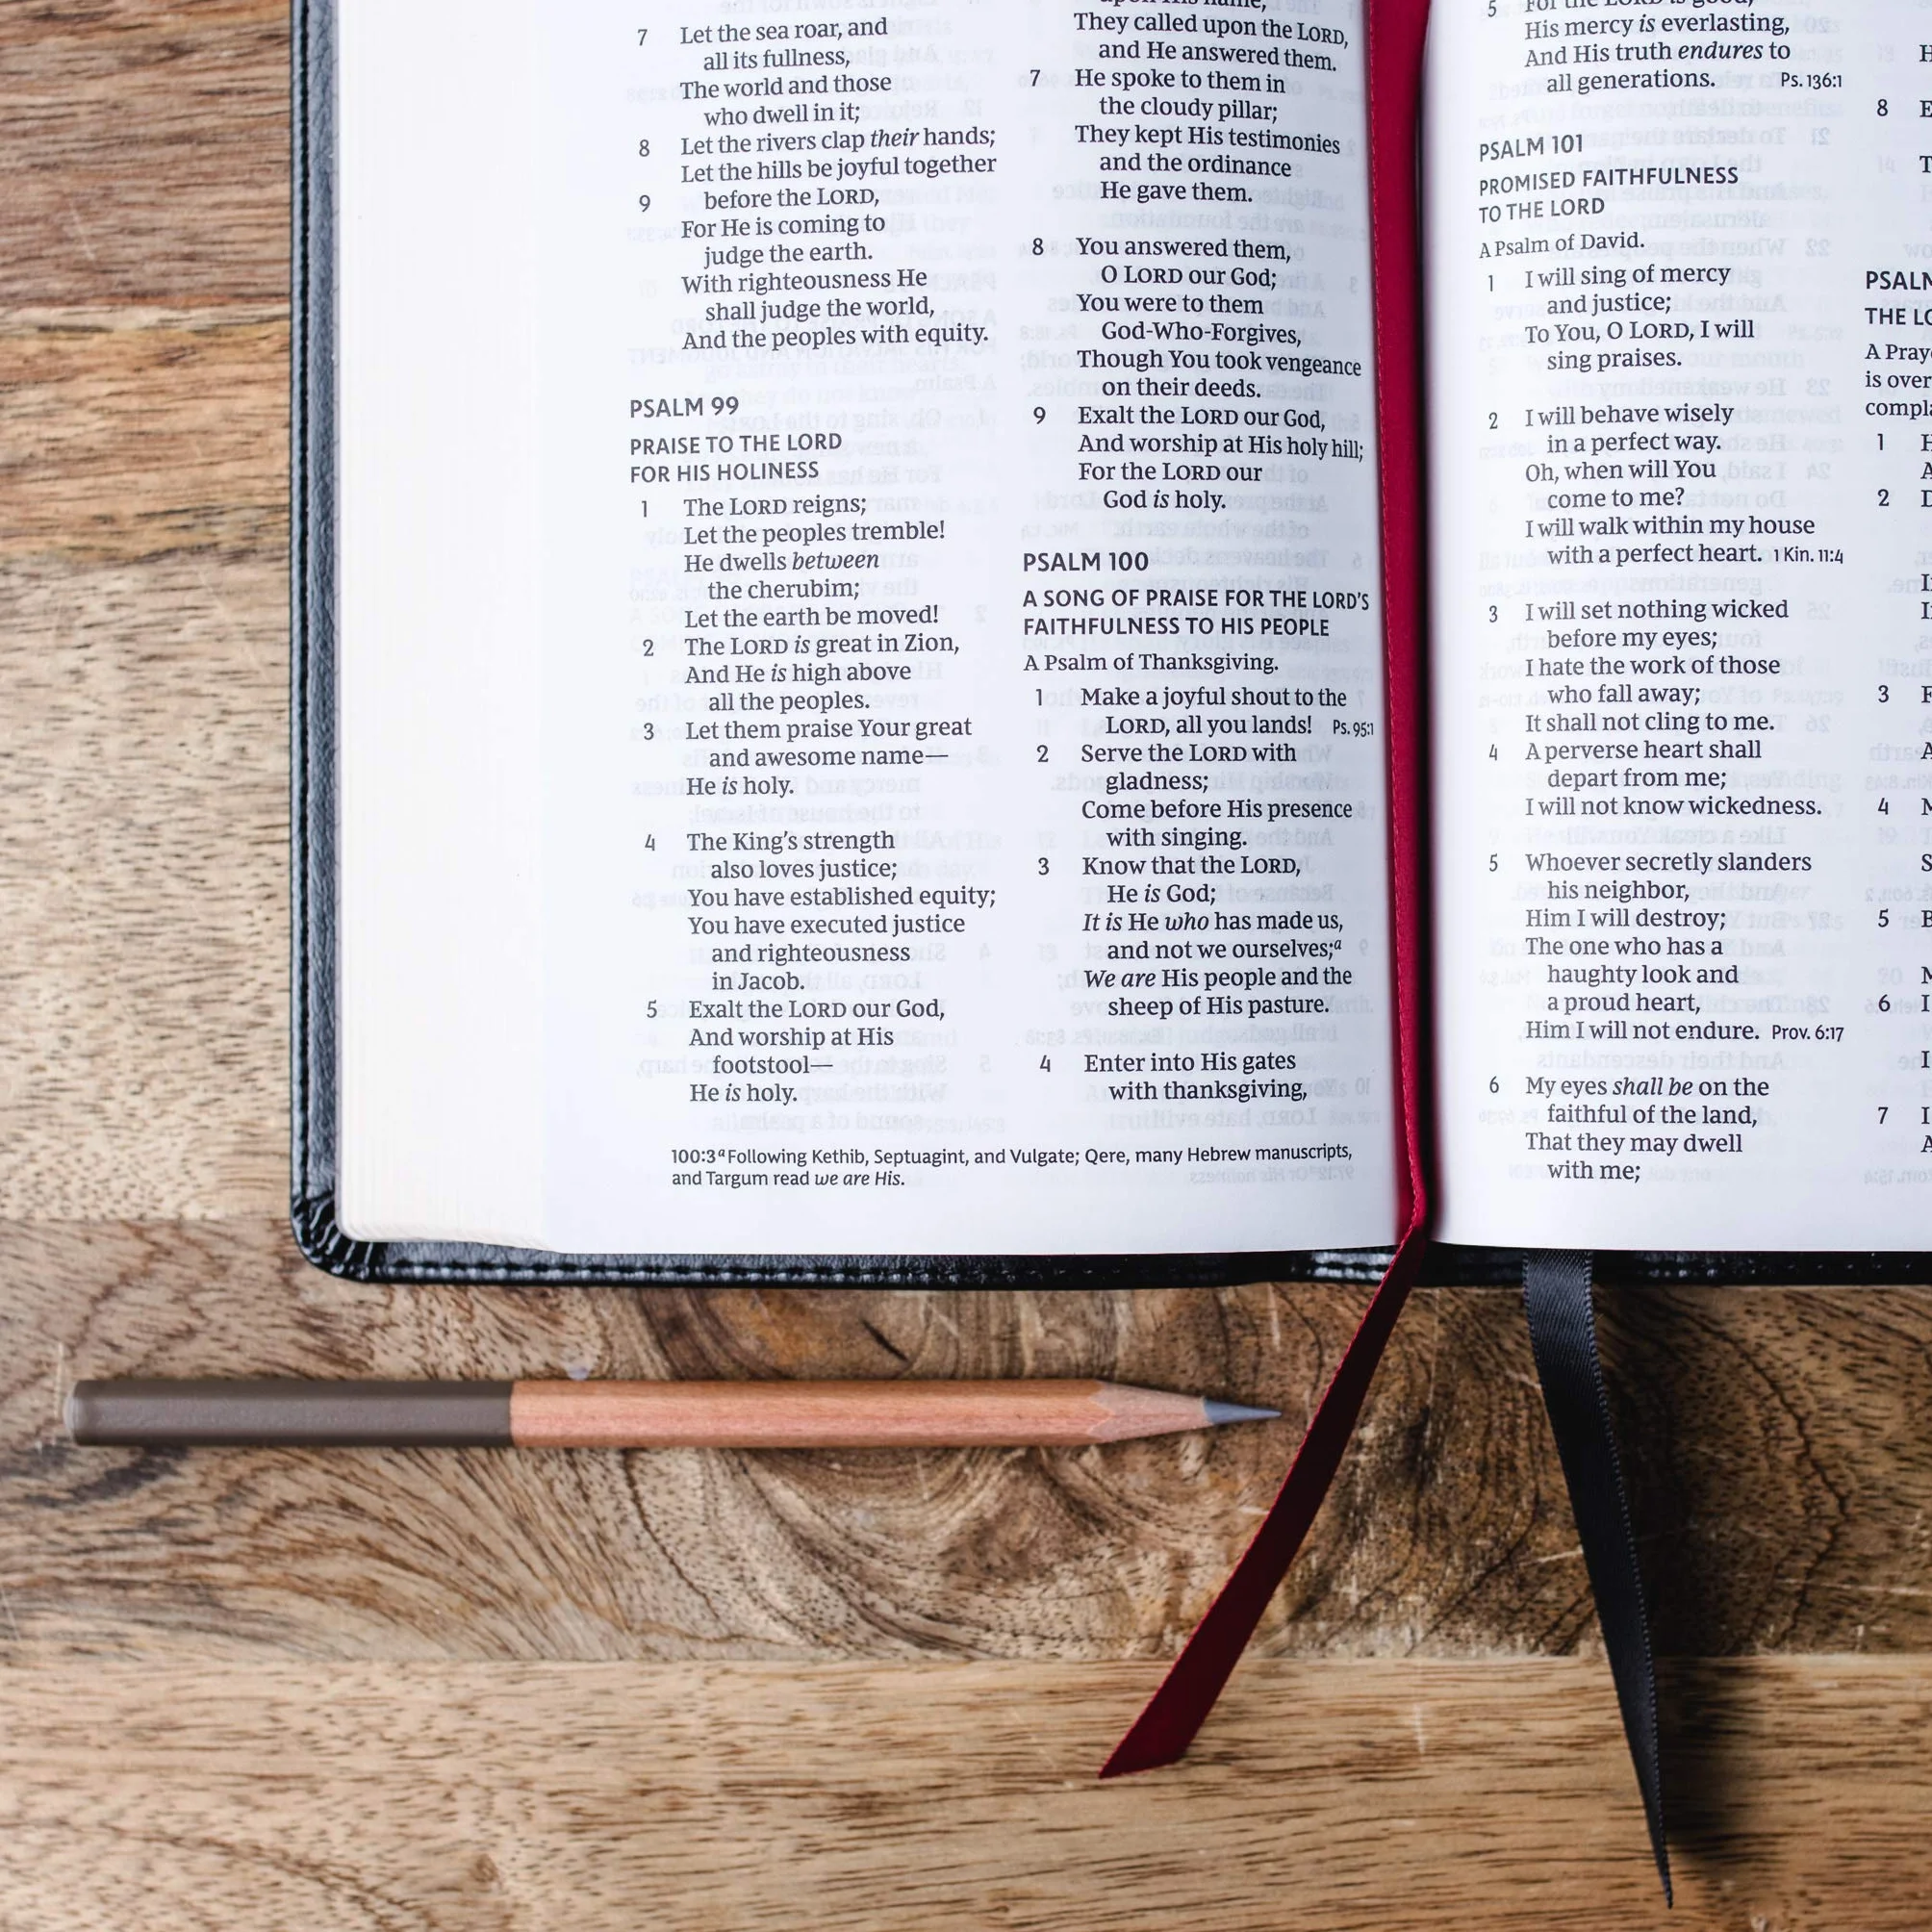 7 Let the sea roar, and
all its fullness,
The world and those
who dwell in it;
8 Let the rivers clap their hands;
Let the hills be joyful together
9 before the LORD,
For He is coming to
judge the earth.
With righteousness He
shall judge the world,
And the peoples with equity.
PSALM 99
PRAISE TO THE LORD
FOR HIS HOLINESS
1 The LORD reigns;
Let the peoples tremble!
He dwells between
the cherubim;
Let the earth be moved!
2 The LORD is great in Zion,
And He is high above
all the peoples.
3 Let them praise Your great
and awesome name—
He is holy.
4 The King's strength
also loves justice;
You have established equity;
You have executed justice
and righteousness
in Jacob.
5 Exalt the LORD our God,
And worship at His
footstool—
He is holy.
upon His name;
They called upon the LORD,
and He answered them.
7 He spoke to them in
the cloudy pillar;
They kept His testimonies
and the ordinance
He gave them.
8 You answered them,
O LORD our God;
You were to them
God-Who-Forgives,
Though You took vengeance
on their deeds.
9 Exalt the LORD our God,
And worship at His holy hill;
For the LORD our
God is holy.
PSALM 100
A SONG OF PRAISE FOR THE LORD'S
FAITHFULNESS TO HIS PEOPLE
A Psalm of Thanksgiving.
1 Make a joyful shout to the
LORD, all you lands! Ps. 95:1
2 Serve the LORD with
gladness;
Come before His presence
with singing.
3 Know that the LORD,
He is God;
It is He who has made us,
and not we ourselves;a
We are His people and the
sheep of His pasture.
4 Enter into His gates
with thanksgiving,
100:3 a Following Kethib, Septuagint, and Vulgate; Qere, many Hebrew manuscripts,
and Targum read we are His.
5 For the LORD is good;
His mercy is everlasting,
And His truth endures to
all generations. Ps. 136:1
PSALM 101
PROMISED FAITHFULNESS
TO THE LORD
A Psalm of David.
1 I will sing of mercy
and justice;
To You, O LORD, I will
sing praises.
2 I will behave wisely
in a perfect way.
Oh, when will You
come to me?
I will walk within my house
with a perfect heart. 1 Kin. 11:4
3 I will set nothing wicked
before my eyes;
I hate the work of those
who fall away;
It shall not cling to me.
4 A perverse heart shall
depart from me;
I will not know wickedness.
5 Whoever secretly slanders
his neighbor,
Him I will destroy;
The one who has a
haughty look and
a proud heart,
Him I will not endure. Prov. 6:17
6 My eyes shall be on the
faithful of the land,
That they may dwell
with me;
8
THE
A
is over
1
2
3
4
5
6 I
7 I